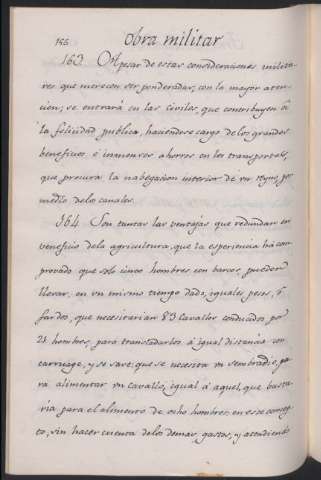 155 Obra militar
163. A pesar de estas consideraciones milita-
res que merecen ser ponderadas, con la mayor aten-
cion; se entrará en las civiles, que contribuyen á
la felicidad publica, haciendose cargo de los grandes
beneficios é inmensos ahorros en los transportes,
que procura la nabegacion interior de un reyno, por
medio de los canales.
164. Son tantas las ventajas que redundan en
veneficio de la agricultura, que la esperiencia há com-
provado que solo cinco hombres con barcos, pueden
llevar, en un mismo tiempo dado, iguales pesos, ó
fardos, que necesitarian 83 cavallos conducidos por
21 hombres, para transladarlos á igual distancia con
carruage, y se save que se necesita un sembradio, pa-
ra alimentar un cavallo, igual á aquel, que basta-
ria para el alimento de ocho hombres; en este concep-
to, sin hacer cuenta de los demas, gastos, y atendiendo